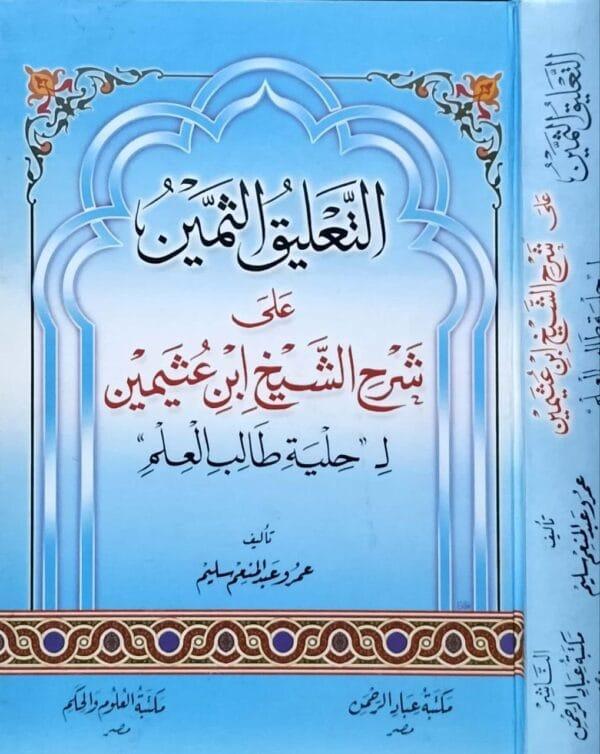 التَّعْليق الثمَّيْنُ
عَلىَ
شَرْحِ الشَّيْخِ ابْنِ عُثيمِين
لِـ "حِليَة طَالبِ الْعِلْمِ"
تأليف
عمرو عبد المنعم سليم
مكتبة عباد الرحمن
مصر
مكتبة العلوم والحكم
مصر
التَّعْليق الثمَّيْنُ
عَلىَ
شَرْحِ الشَّيْخِ ابْنِ عُثيمِين
تأليف
عمرو عبد المنعم سليم
الناشر
مكتبة عباد الرحمن